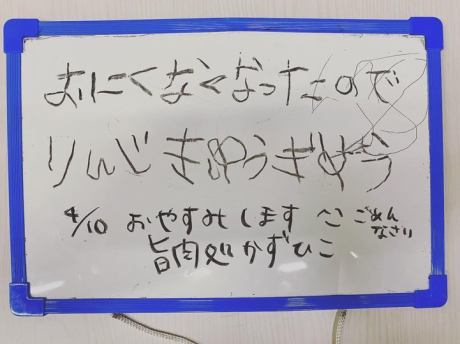 おにくなくなったので
りんじきゅうぎょう
4/10 おやすみします ごめんなさい
旨肉処かずひこ